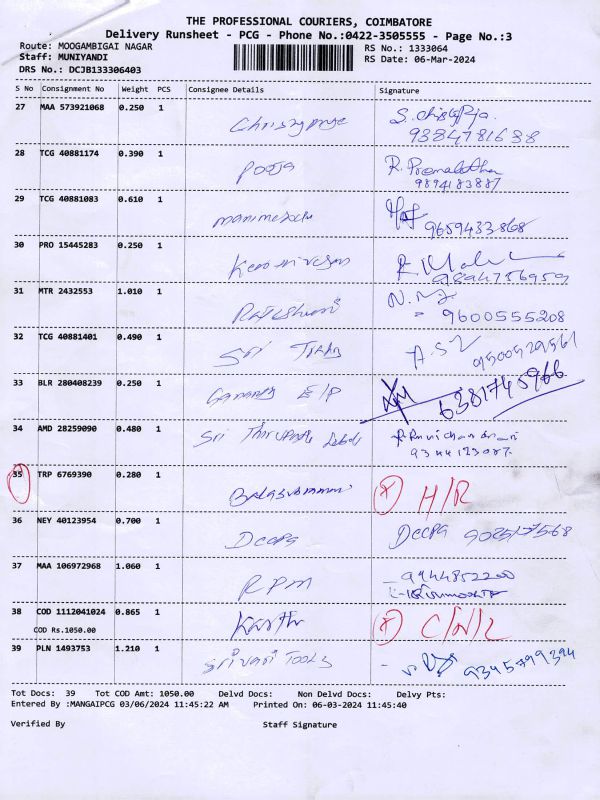 THE PROFESSIONAL COURIERS, COIMBATORE
Delivery Runsheet - PCG - Phone No.:0422-3505555 - Page No.:3
Route: MOOGAMBIGAI NAGAR
Staff: MUNIYANDI
DRS No.: DCJB133306403
RS No.: 1333064
RS Date: 06-Mar-2024
S No Consignment No Weight PCS Consignee Details Signature
27 MAA 573921068 0.250 1
9384781638
28 TCG 40881174 0.390 1 Pooja R. Premalatha
9894183887
29 TCG 40881083 0.610 1
9659433868
30 PRO 15445283 0.250 1
9894756959
31 MTR 2432553 1.010 1
9600555208
32 TCG 40881401 0.490 1 Sri
9500529561
33 BLR 280408239 0.250 1 E/P 6381745966
34 AMD 28259090 0.480 1 Sri
35 TRP 6769390 0.280 1 H/R
36 NEY 40123954 0.700 1 Deepa Deepa
37 MAA 106972968 1.060 1 RPM 9944852200
38 COD 1112041024 0.865 1 Karthi
COD Rs.1050.00
39 PLN 1493753 1.210 1 Srivari Tools 9345799394
Tot Docs: 39 Tot COD Amt: 1050.00 Delvd Docs: Non Delvd Docs: Delvy Pts:
Entered By :MANGAIPCG 03/06/2024 11:45:22 AM Printed On: 06-03-2024 11:45:40
Verified By Staff Signature